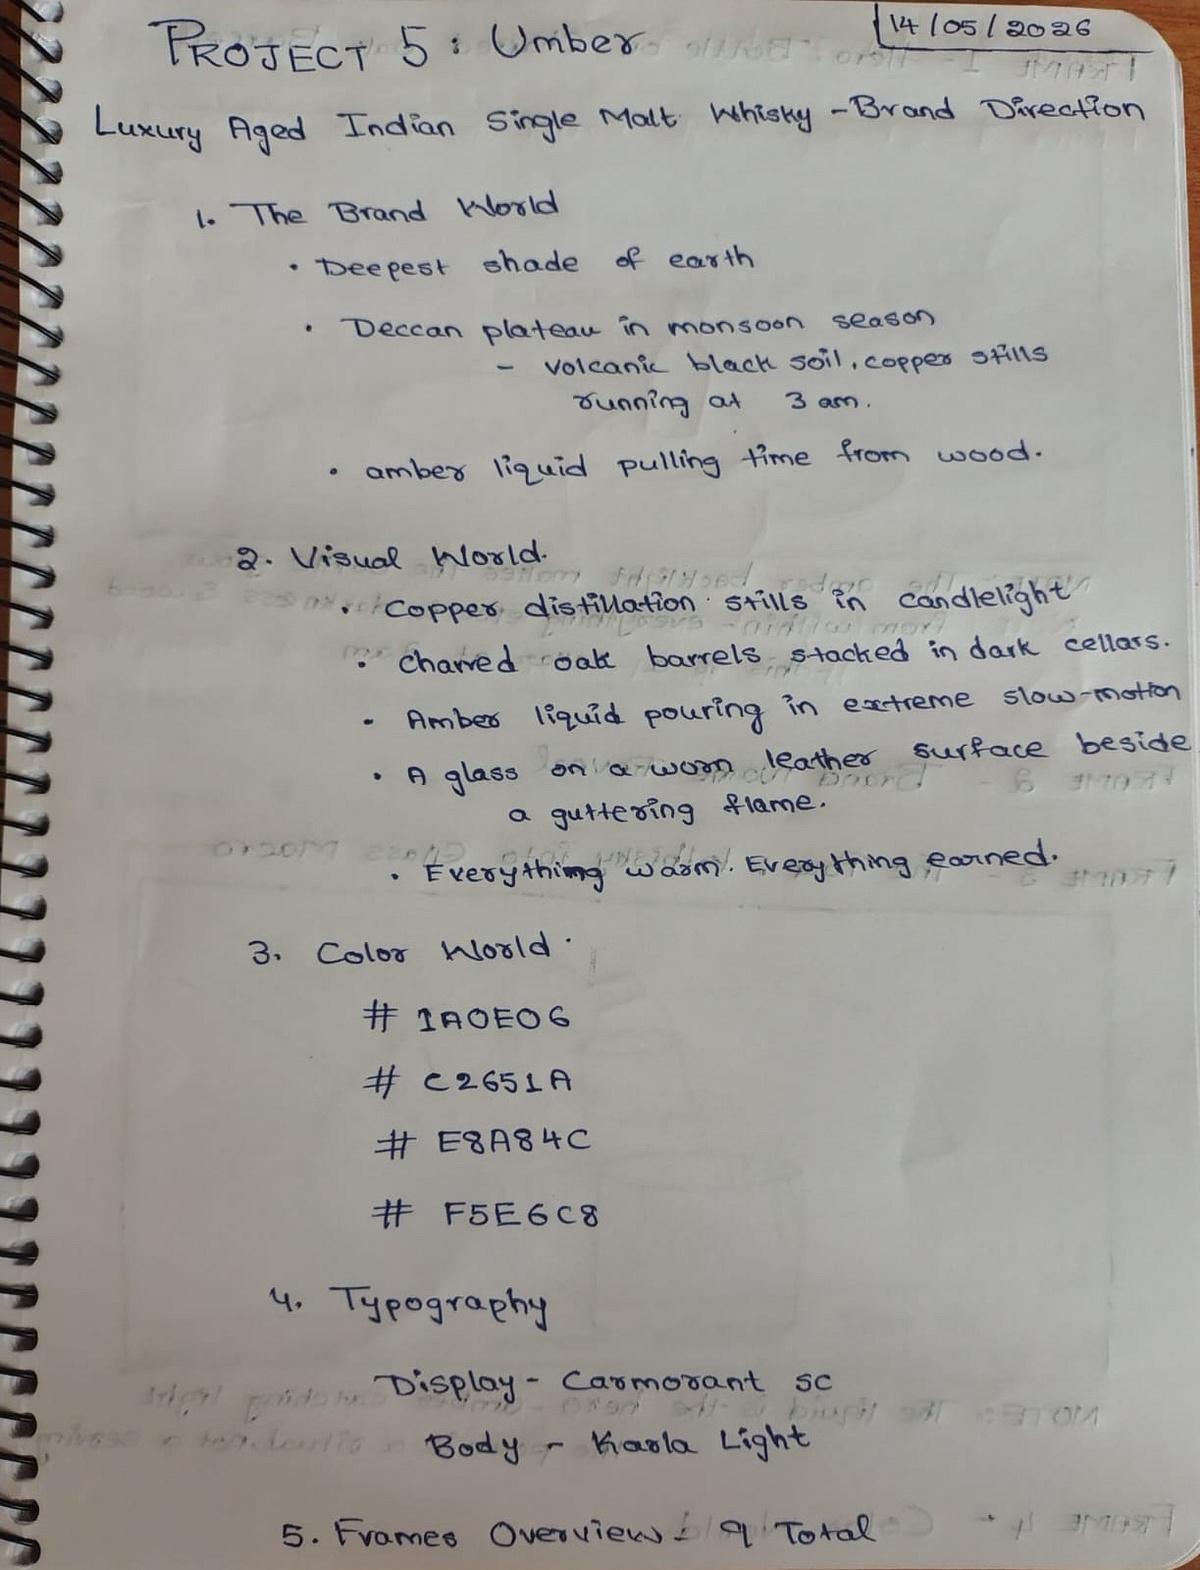 PROJECT 5: Umber
14/05/2026
Luxury Aged Indian Single Malt Whisky - Brand Direction
1. The Brand World
• Deepest shade of earth
• Deccan plateau in monsoon season
- volcanic black soil, copper stills
running at 3 am.
• amber liquid pulling time from wood.
2. Visual World.
• Copper distillation stills in candlelight
• charred oak barrels stacked in dark cellars.
• Amber liquid pouring in extreme slow-motion
• A glass on a worn leather surface beside
a guttering flame.
• Everything warm. Everything earned.
3. Color World.
# 1A0E06
# C2651A
# E8A84C
# F5E6C8
4. Typography
Display - Carmorant SC
Body - Karla Light
5. Frames Overview - 9 Total